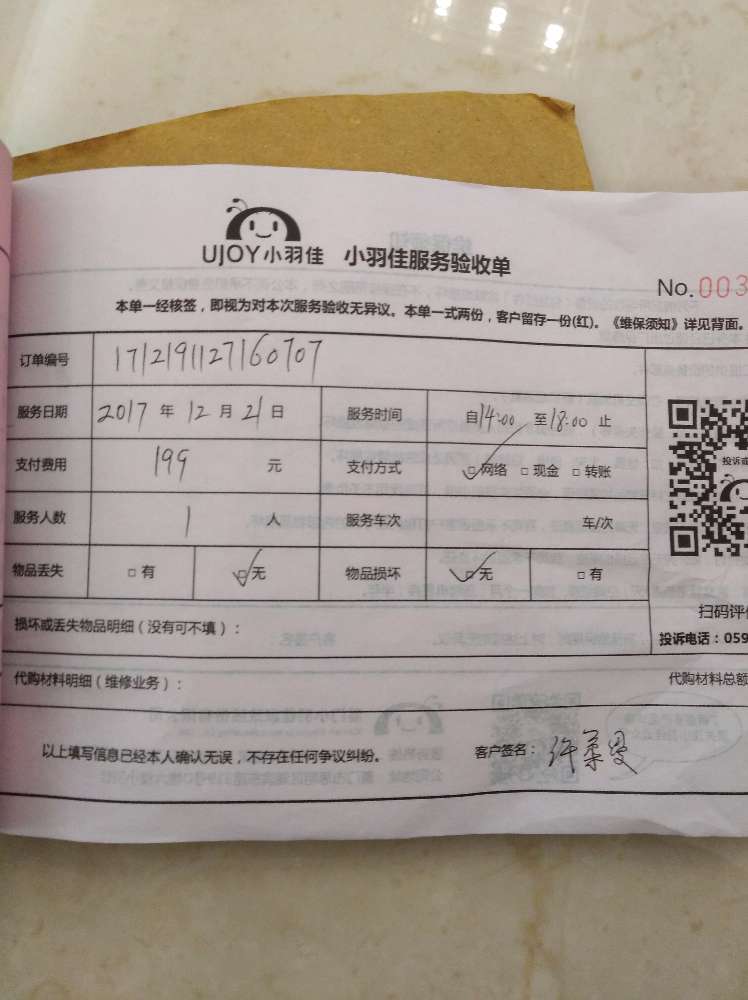 UJOY小羽佳 小羽佳服务验收单
No.003
本单一经核签，即视为对本次服务验收无异议。本单一式两份，客户留存一份(红)。《维保须知》详见背面。
订单编号 1712191127160707
服务日期 2017 年 12 月 21 日 服务时间 自14:00 至18:00 止
支付费用 199 元 支付方式 ☑网络 □现金 □转账
投诉或
服务人数 1 人 服务车次 车/次
物品丢失 □有 ☑无 物品损坏 ☑无 □有
扫码评价
损坏或丢失物品明细（没有可不填）：
投诉电话：059
代购材料明细（维修业务）： 代购材料总额
以上填写信息已经本人确认无误，不存在任何争议纠纷。 客户签名：许